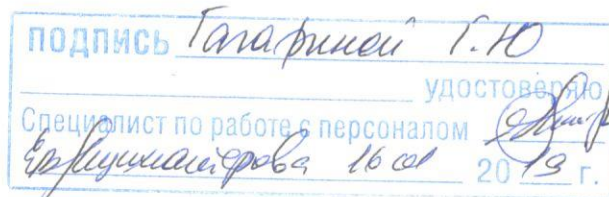 ПОДПИСЬ Гагариной Г.Ю
удостоверяю
Специалист по работе с персоналом
16 01 2019 г.